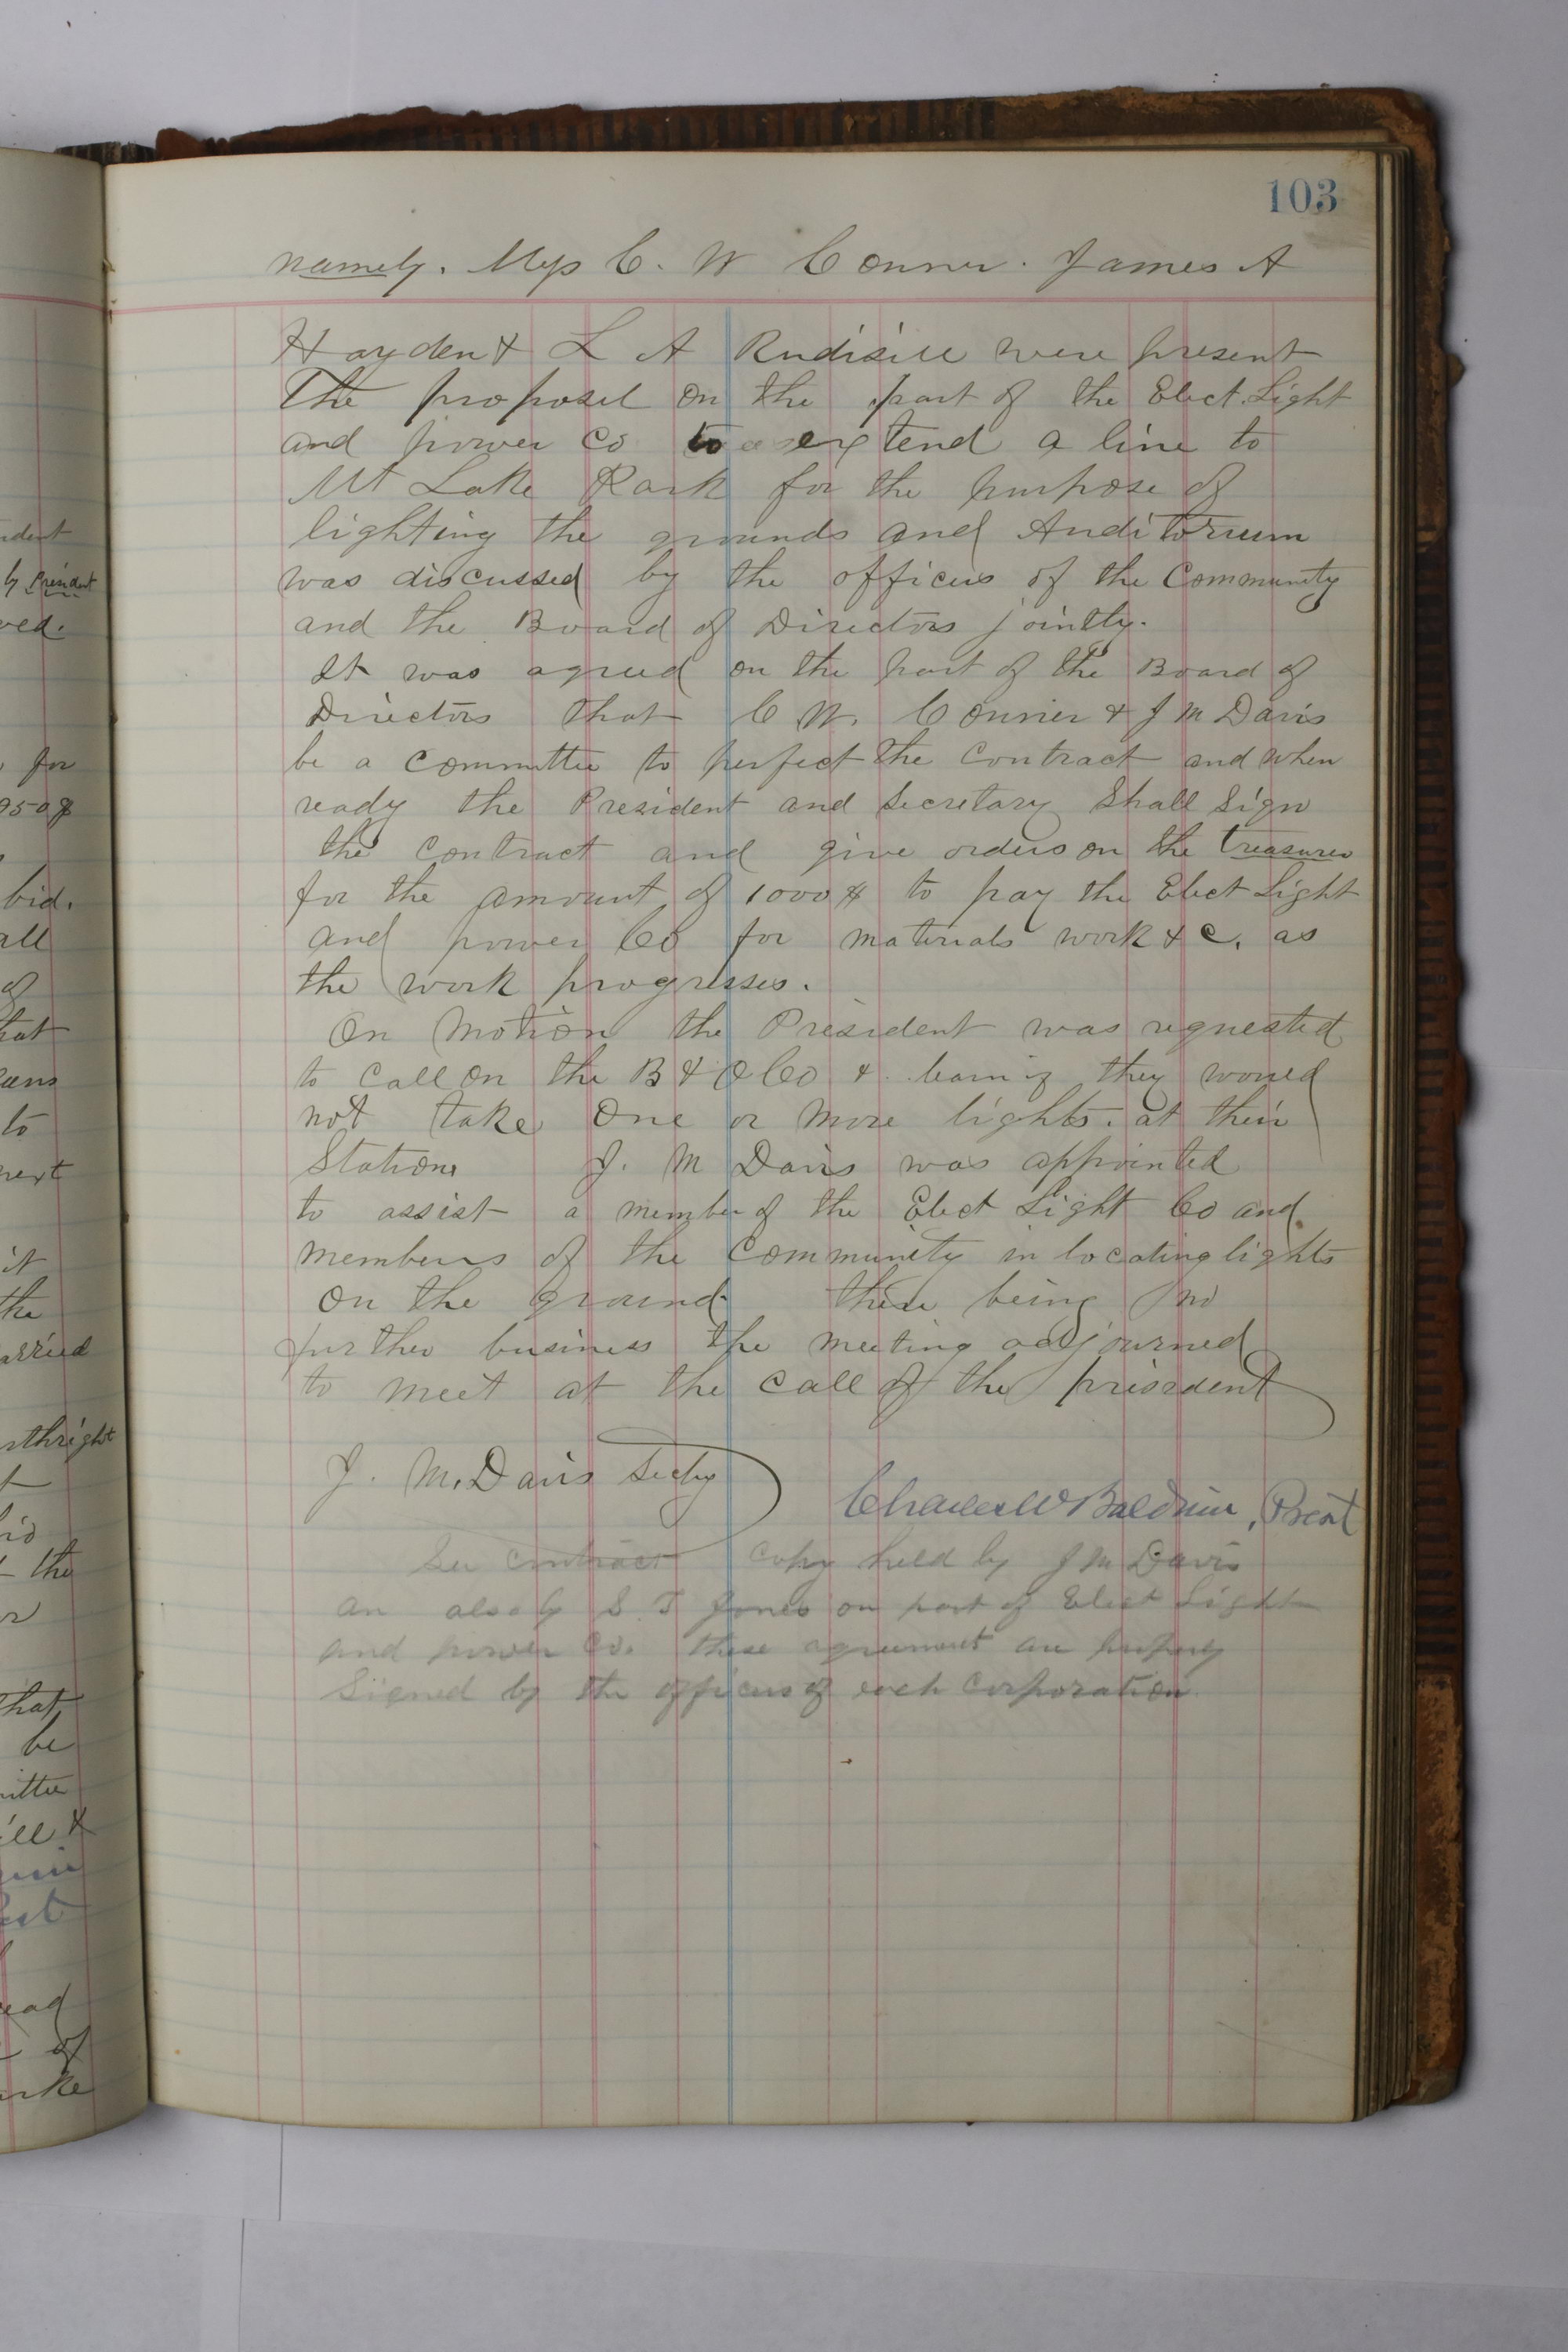 103
namely. Mess C. W Conner. James A
Hayden & L A Rudisill were present
The proposel on the part of the Elect. Light
and power Co to extend a line to
Mt Lake Park for the purpose of
lighting the grounds and Auditorium
was discussed by the officers of the Community
and the Board of Directors jointly.
It was agreed on the part of the Board of
Directors that C W. Conner & J M Davis
be a committee to perfect the contract and when
ready the President and Secretary Shall Sign
the contract and give orders on the treasurer
for the amount of 1000 $ to pay the Elect Light
and power Co for materials work & c. as
the work progresses.
On motion the President was requested
to call on the B & O Co & learn if they would
not take one or more lights. at their
Station J. M Davis was appointed
to assist a member of the Elect Light Co and
members of the Community in locating lights
on the ground there being no
further business the meeting adjourned
to meet at the call of the presedent
J. M. Davis Secty
Charles W Baldwin, Prest
See contract copy held by J M Davis
an also by S T Jones on part of Elect Light
and power Co. these agreement are properly
Signed by the officers of each Corporation
ident
by President
for
bid.
all
of
that
to
next
it
the
arried
the
that
be
ittee
ill &
ead
of